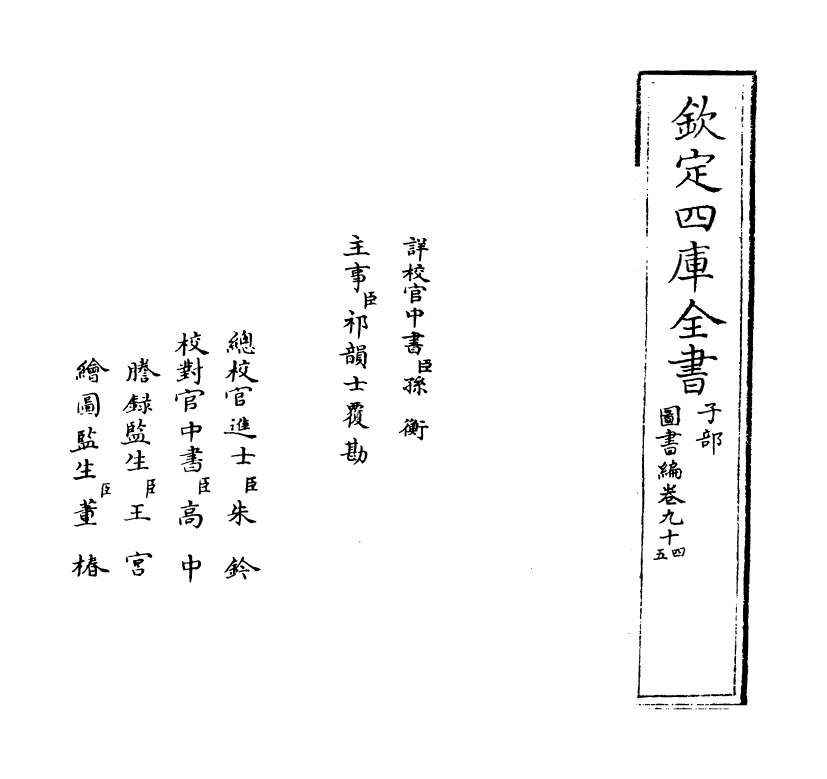 欽定四庫全書
子部
圖書編卷九十四五
詳校官中書臣孫衡
主事臣祁韻士覆勘
總校官進士臣朱鈐
校對官中書臣高中
謄錄監生臣王宮
繪圖監生臣董椿